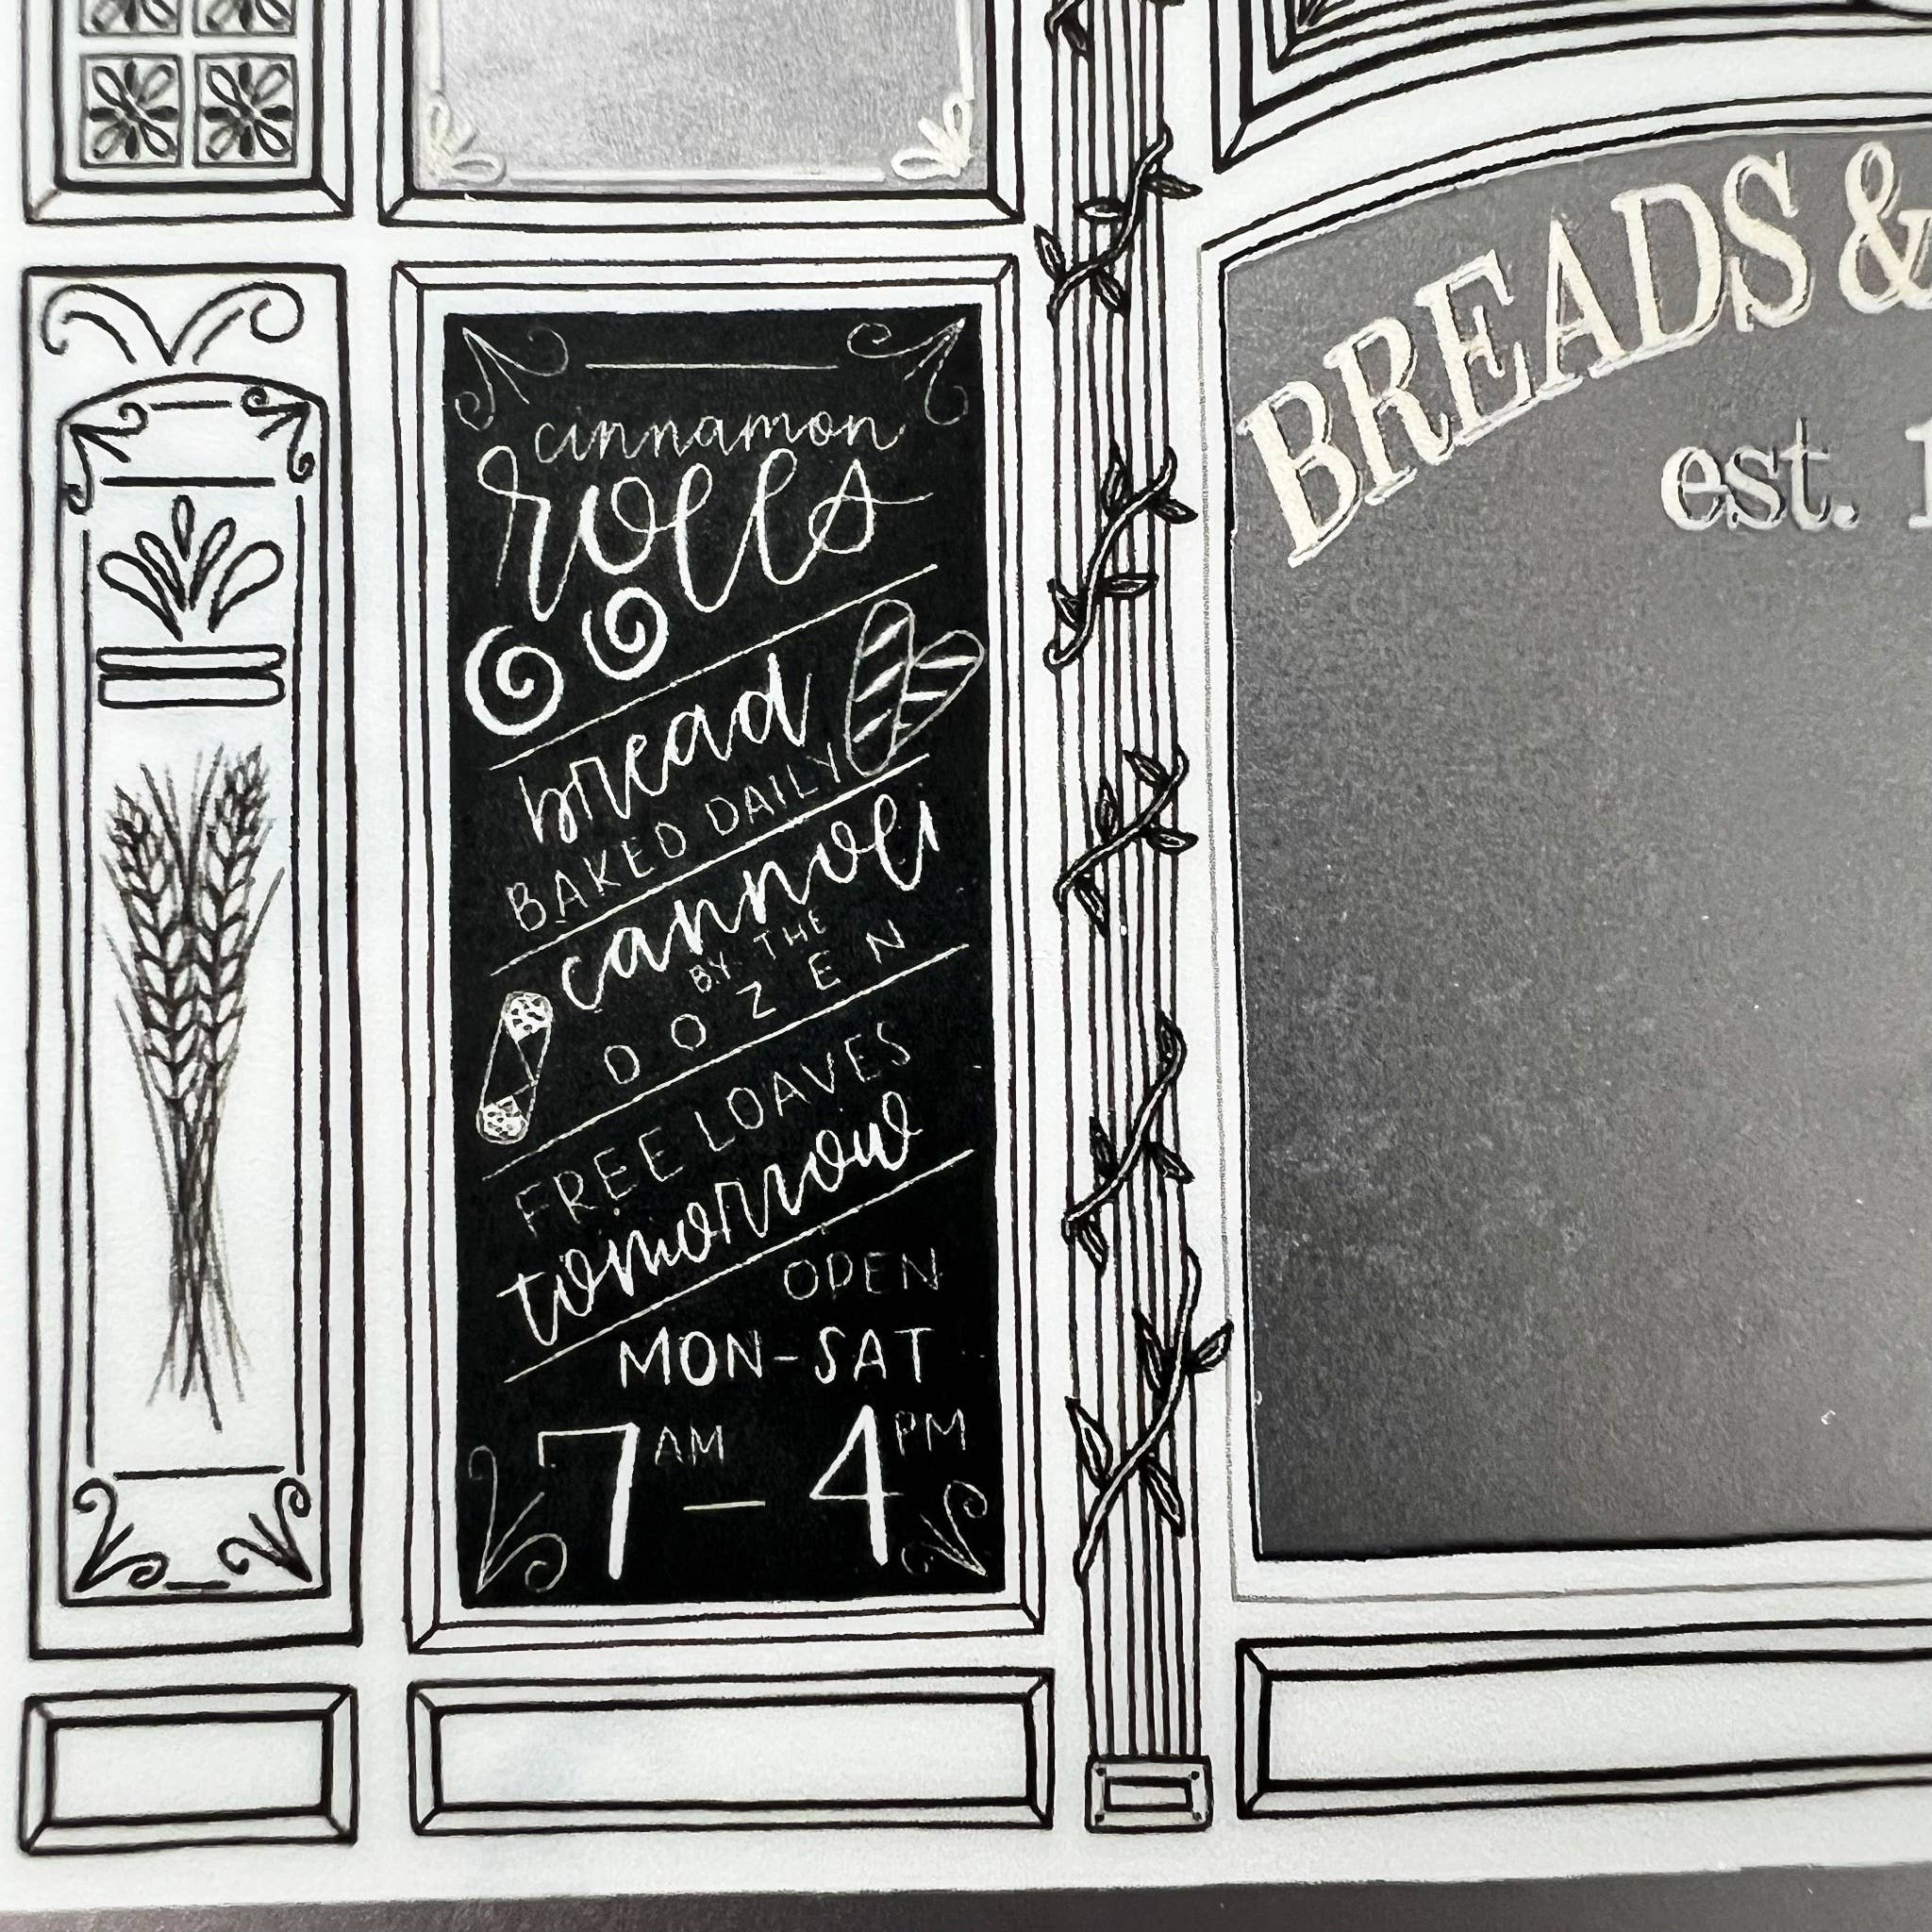 cinnamon
rolls
bread
BAKED DAILY
cannoli
BY THE
DOZEN
FREE LOAVES
tomorrow
OPEN
MON-SAT
7AM — 4PM
BREADS &
est. 1